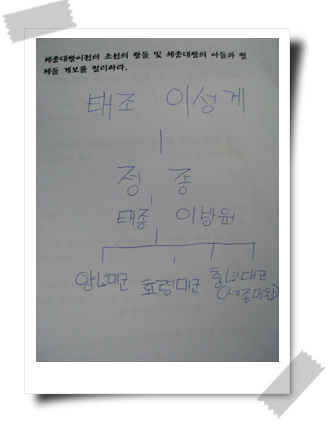 세종대왕이전의 조선의 왕들 및 세종대왕의 아들과 형
제들 계보를 정리하라.
태조 이성계
정 종
태종 이방원
양녕대군 효령대군 충녕대군
(세종대왕)